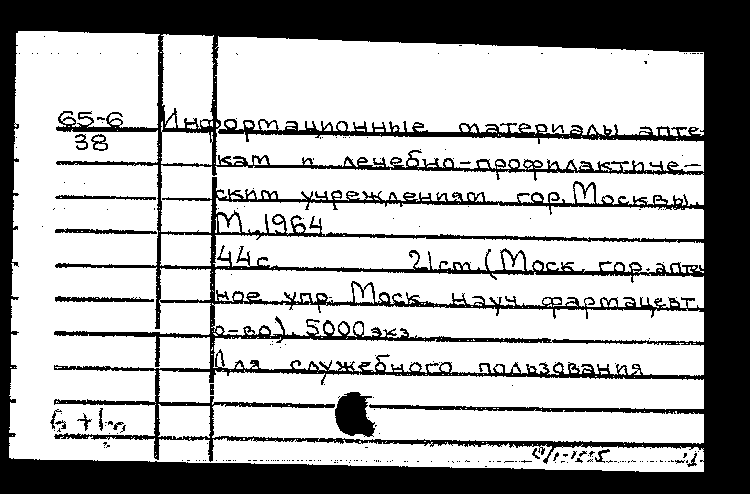 65-6 Информационные материалы апте-
38
кам и лечебно-профилактиче-
ским учреждениям гор. Москвы.
М., 1964
44с. 21см. (Моск. гор. аптеч
ное упр. Моск. науч. фармацевт.
о-во). 5000 экз.
Для служебного пользования